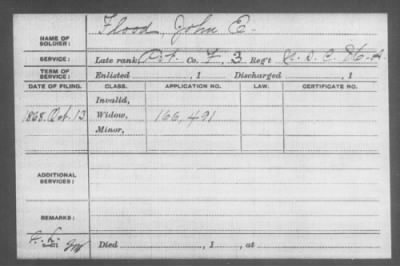 NAME OF SOLDIER: Flood, John E.
SERVICE: Late rank, Pvt. Co. F, 3 Reg't U.S.C. H.A.
TERM OF SERVICE: Enlisted , 1 Discharged , 1
DATE OF FILING. CLASS. APPLICATION NO. LAW. CERTIFICATE NO.
Invalid,
1868, Oct. 13 Widow, 166,491
Minor,
ADDITIONAL SERVICES:
REMARKS:
Died , 1 , at